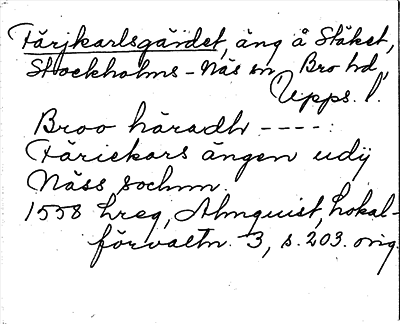 Färjkarlsgärdet, äng å Stäket,
Stockholms-Näs sn Bro hd,
Upps. l.
Broo häradh ----:
Färiekars ängen udij
Näss sochnn.
1558 Lreg, Almquist, Lokal-
förvaltn. 3, s. 203. orig.